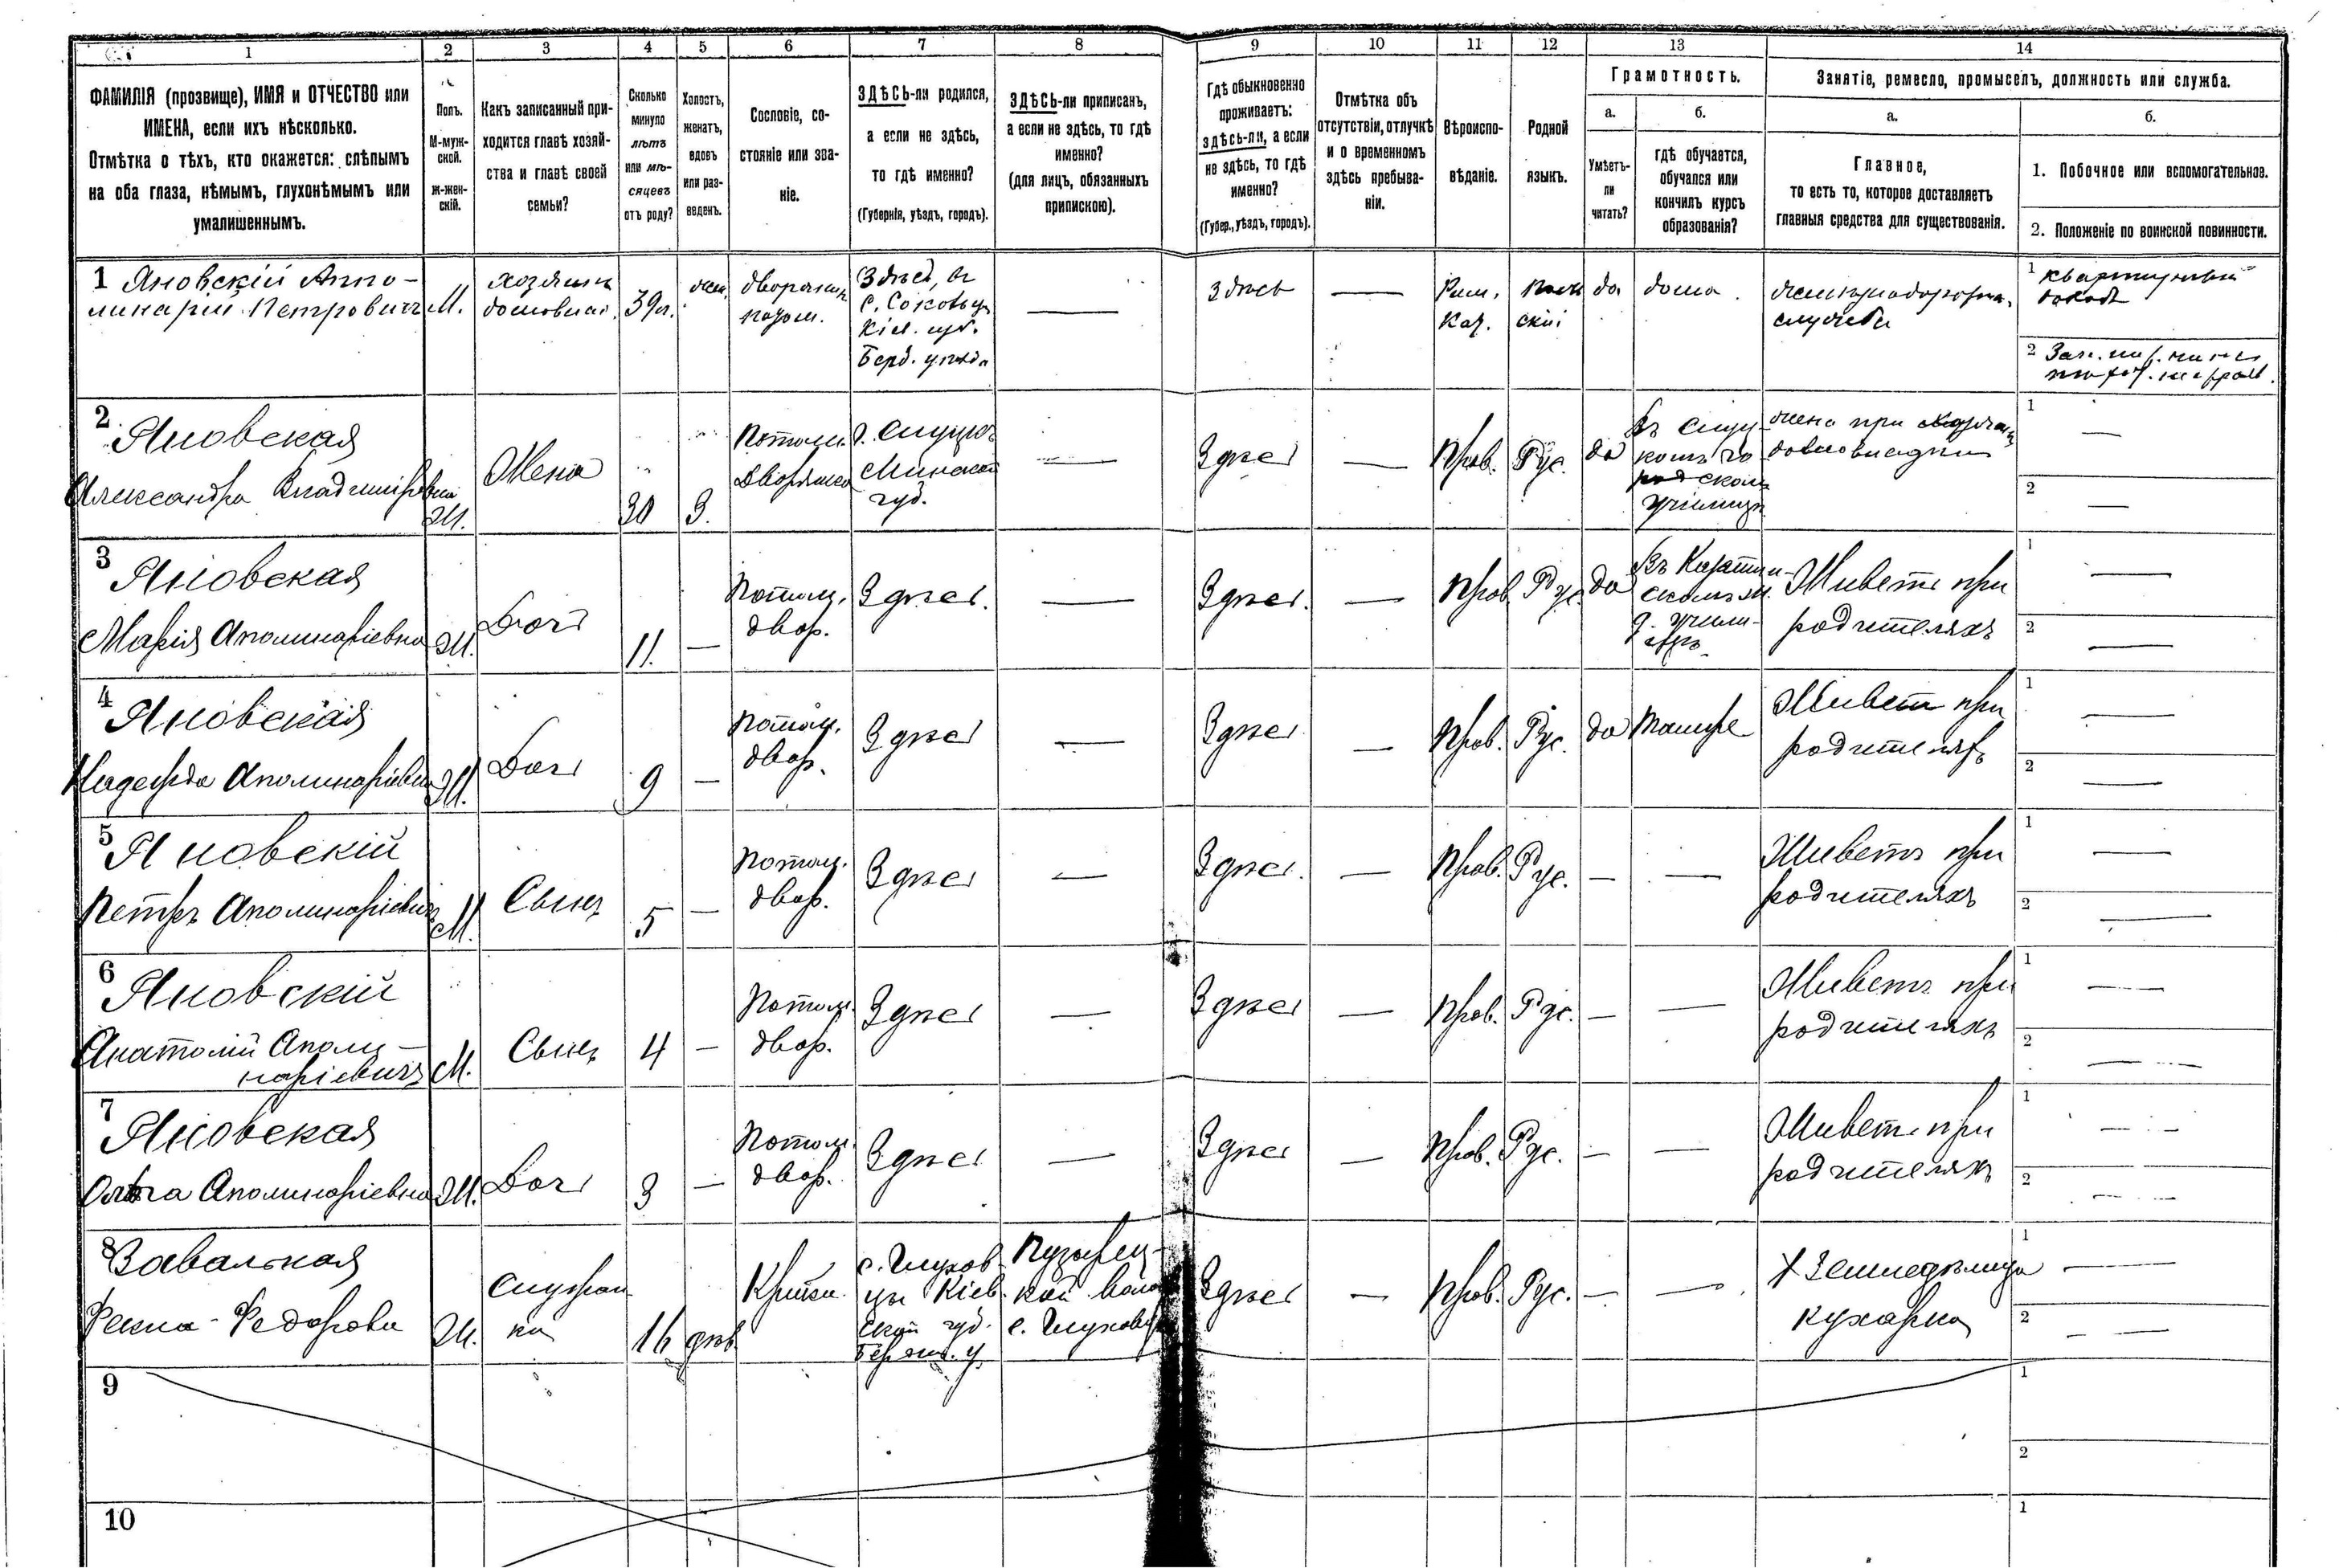 1 2 3 4 5 6 7 8 9 10 11 12 13 14
ФАМИЛІЯ (прозвище), ИМЯ и ОТЧЕСТВО или
ИМЕНА, если ихъ нѣсколько.
Отмѣтка о тѣхъ, кто окажется: слѣпымъ
на оба глаза, нѣмымъ, глухонѣмымъ или
умалишеннымъ.
Полъ.
М-муж-
ской.
ж-жен-
скій.
Какъ записанный при-
ходится главѣ хозяй-
ства и главѣ своей
семьи?
Сколько
минуло
лѣтъ
или мѣ-
сяцевъ
отъ роду?
Холостъ,
женатъ,
вдовъ
или раз-
веденъ.
Сословіе, со-
стояніе или зва-
ніе.
ЗДѢСЬ-ли родился,
а если не здѣсь,
то гдѣ именно?
(Губернія, уѣздъ, городъ).
ЗДѢСЬ-ли приписанъ,
а если не здѣсь, то гдѣ
именно?
(для лицъ, обязанныхъ
припискою).
Гдѣ обыкновенно
проживаетъ:
здѣсь-ли, а если
не здѣсь, то гдѣ
именно?
(Губер., уѣздъ, городъ).
Отмѣтка объ
отсутствіи, отлучкѣ
и о временномъ
здѣсь пребыва-
ніи.
Вѣроиспо-
вѣданіе.
Родной
языкъ.
Грамотность.
а.
Умѣетъ-
ли
читать?
б.
гдѣ обучается,
обучался или
кончилъ курсъ
образованія?
Занятіе, ремесло, промыселъ, должность или служба.
а.
Главное,
то есть то, которое доставляетъ
главныя средства для существованія.
б.
1. Побочное или вспомогательное.
2. Положеніе по воинской повинности.
1 Яновскій Аппо-
линарій Петровичъ
М.
хозяинъ
39л.
дворянин
Здѣсь, въ
Кіев. губ.
Берд. уѣзда
—
здѣсь
—
Рим.
Кат.
Поль
скій
да
дома.
служба
1 квартирный
доход
2
2 Яновская
Александра Владимiровна
Ж.
Жена
30
З.
Потом.
дворянка
г. Слуцкъ
Минской
губ.
—
Здѣсь
—
Прав.
Рус.
да
Въ Слу
комъ го
родском
училищѣ
жена при
1 —
2 —
3 Яновская
Марія Аполинаріевна
Ж.
Дочь
11.
—
Потом.
двор.
Здѣсь.
—
Здѣсь.
—
Прав.
Рус.
да
Живетъ при
родителяхъ
1 —
2 —
4 Яновская
Надежда Аполинаріевна
Ж.
Дочь
9
—
Потом.
двор.
Здѣсь
—
Здѣсь
—
Прав.
Рус.
да
Тамже
Живет при
родителях
1 —
2 —
5 Яновскій
Петръ Аполинаріевичъ
М.
Сынъ
5
—
Потом.
двор.
Здѣсь
—
Здѣсь.
—
Прав.
Рус.
—
—
Живетъ при
родителяхъ
1 —
2 —
6 Яновскій
Анатолій Аполи-
наріевичъ
М.
Сынъ
4
—
Потом.
двор.
Здѣсь
—
Здѣсь
—
Прав.
Рус.
—
—
Живетъ при
родителяхъ
1 —
2 —
7 Яновская
Ольга Аполинаріевна
Ж.
Дочь
3
—
Потом.
двор.
Здѣсь
—
Здѣсь
—
Прав.
Рус.
—
—
Живетъ при
родителяхъ
1 —
2 —
8 Завальская
Текла Федорова
Ж.
Служан
ка
16
дѣв.
Крестьян.
с. Глухов
цы Кіев
ской губ.
—
с. Глуховцы
Здѣсь
—
Прав.
Рус.
—
—
кухарка
1 —
2 —
9
1
2
10
1